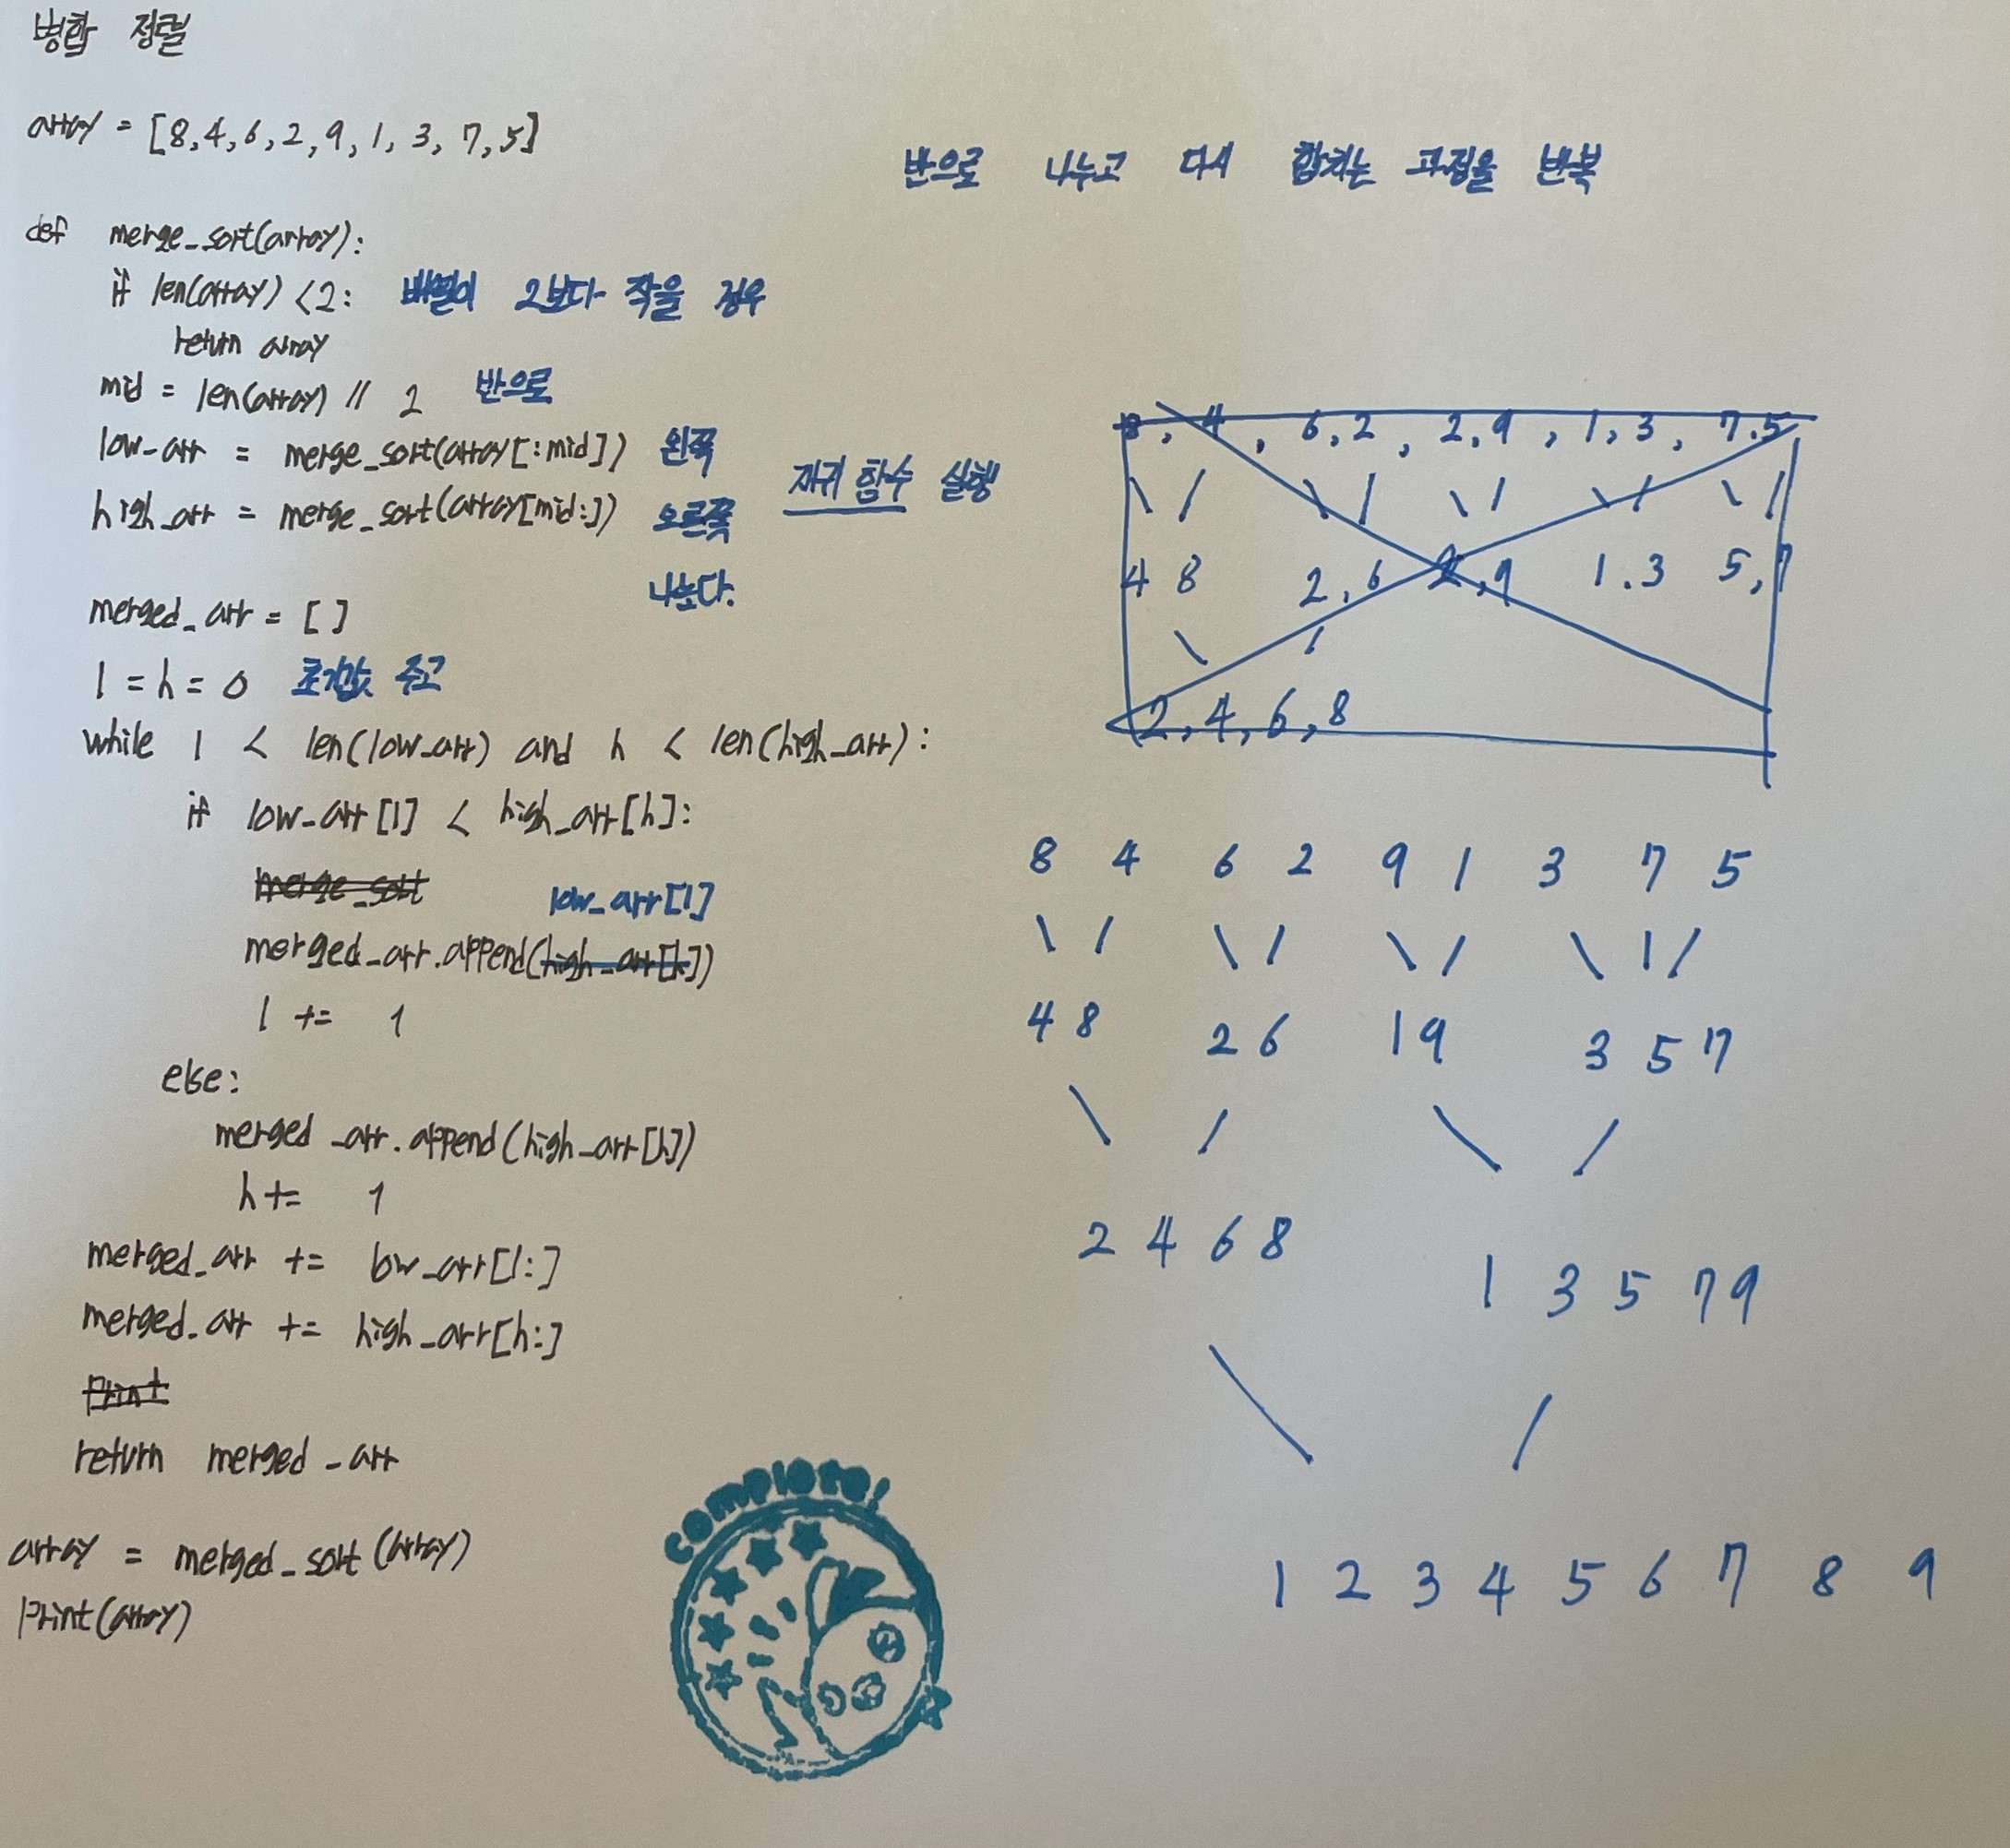 병합 정렬
array = [8,4,6,2,9,1,3,7,5]
반으로 나누고 다시 합치는 과정을 반복
def merge_sort(array):
if len(array) <2: 배열이 2보다 작을 경우
return array
mid = len(array) // 2 반으로
low_arr = merge_sort(array[:mid]) 왼쪽
high_arr = merge_sort(array[mid:]) 오른쪽
재귀 함수 실행
나눈다.
merged_arr = []
l = h = 0 초기값 주고
while l < len(low_arr) and h < len(high_arr):
if low_arr[l] < high_arr[h]:
merge_sort
low_arr[l]
merged_arr.append(high_arr[h])
l += 1
else:
merged_arr.append(high_arr[h])
h += 1
merged_arr += low_arr[l:]
merged_arr += high_arr[h:]
print
return merged_arr
array = merged_sort(array)
print(array)
8, 4, 6,2, 2,9, 1,3, 7.5
4 8 2,6 2,9 1.3 5,7
2,4,6,8
8 4 6 2 9 1 3 7 5
4 8 2 6 1 9 3 5 7
2 4 6 8 1 3 5 7 9
1 2 3 4 5 6 7 8 9
complete!